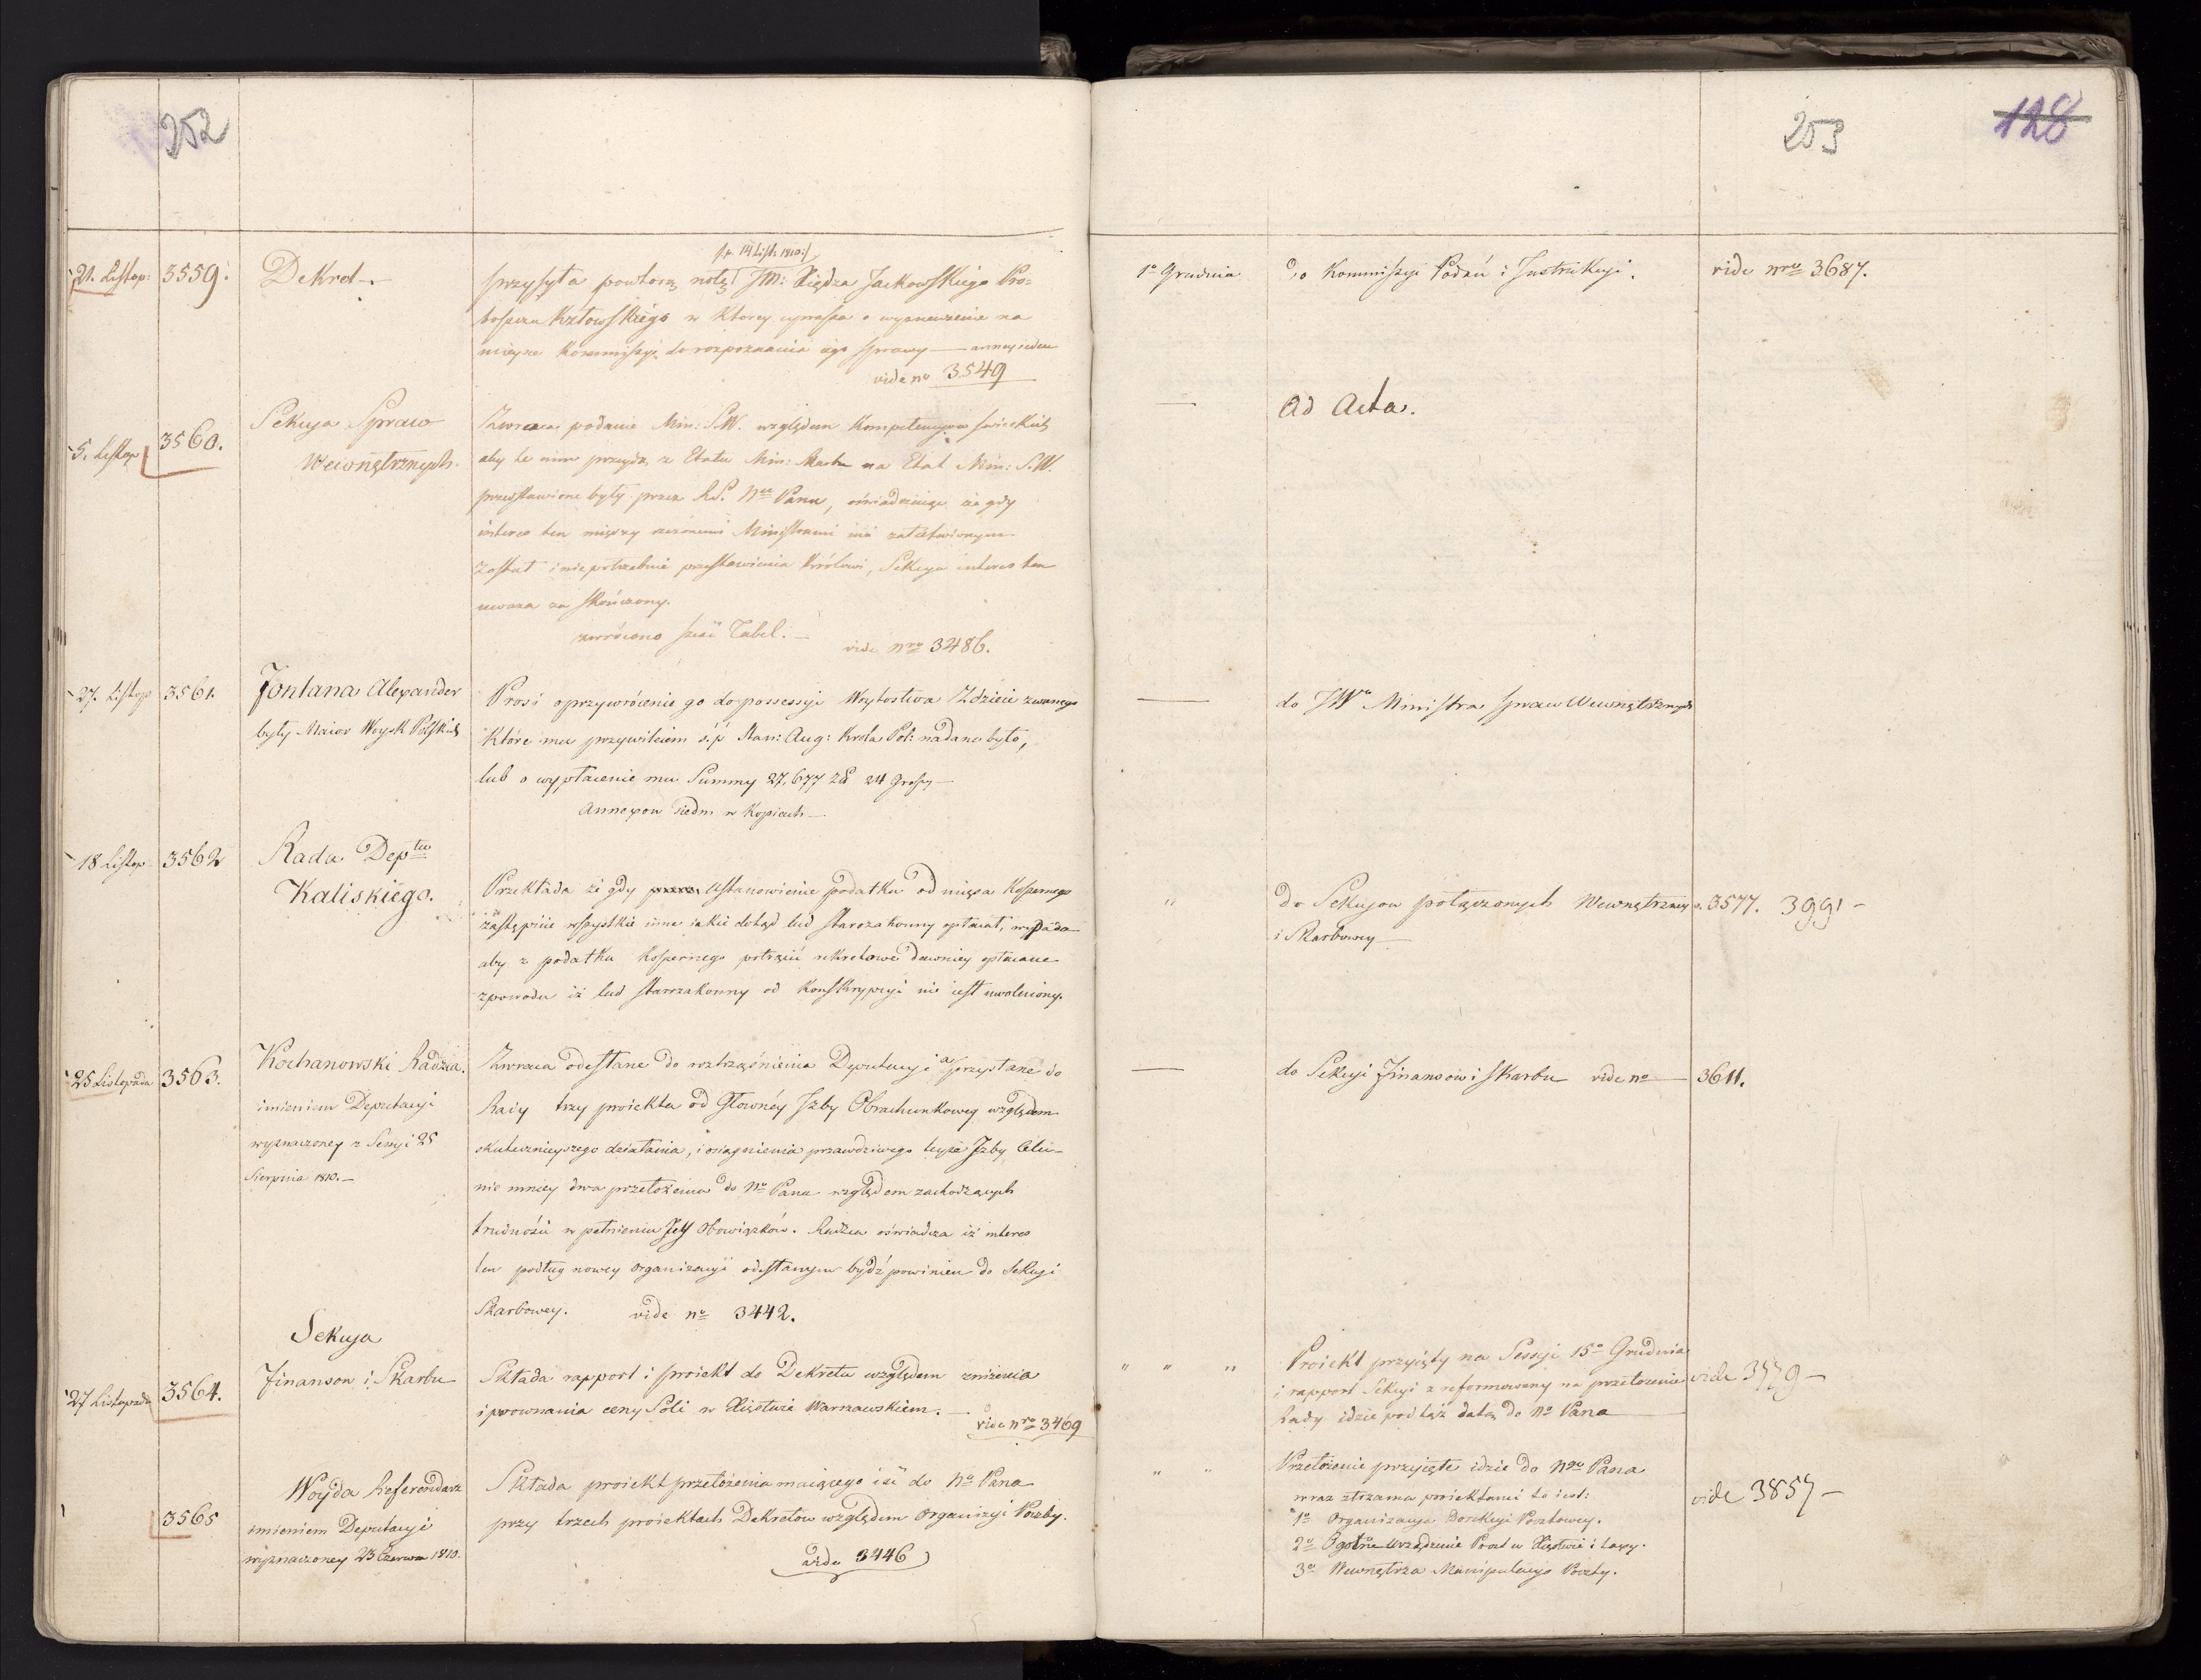 252
21. Listop: 3559. Dekret
/:z 14 List: 1810:/
przysyła powtorną notę JM: Xiędza Jackowskiego Pro=
boszcza w ktorey uprasza o wyznaczenie na
mieysce Kommissyi do rozpoznania iego sprawy — annex ieden
vide no 3549
5. Listop 3560. Sekcya Spraw
Wewnętrznych.
Zwraca podanie Min: S.W. względem Kompetencyow
aby te z Etatu Min: Skarbu na Etat Min: S.W.
przedstawione były przez R.S. Nu Panu, oświadczaiąc że gdy
interes ten między Ministrami iuż załatwionym
został i niepotrzebuie przedstawienia Królowi, Sekcya interes ten
uważa za skończony.
zwrócono sześć Tabel. —
vide nro 3486.
27. Listop 3561. Fontana Alexander
były Maior Woysk Polskich
Prosi o przywrócenie go do possessyi Woytostwa Zdzieci zwanego
Które mu przywileiem ś.p. Stan: Aug: Krola Pol: nadane było,
lub o wypłacenie mu Summy 27,677 zł 24 Groszy —
Annexow siedm w Kopiach —
18 Listop 3562 Rada Deptu
Kaliskiego.
Przekłada że gdy ustanowienie podatku od mięsa Koszernego
zastępuie wszystkie inne iakie dotąd lud starozakonny opłacał, wypada
aby z podatku koszernego potrącić rekrutowe dawniey opłacane
zpowodu iż lud starozakonny od Konskrypcyi nie iest uwolniony.
25 Listopada 3563. Kochanowski Radzca.
imieniem Deputacyi
wyznaczoney z Sessyi 25
Sierpnia 1810. —
Zwraca odesłane do roztrząśnienia Deputacyi a przysłane do
Rady trzy proiekta od Głowney Izby Obrachunkowey względem
skutecznieyszego działania, i osiągnienia prawdziwego teyże Izby Celu—
nie mniey dwa przełożenia do No Pana względem zachodzących
trudności w pełnieniu Jey Obowiązków. Radzca oświadcza iż interes
ten podług nowey organizacyi odesłanym bydź powinien do Sekcyi
Skarbowey. vide no 3442.
27 Listopada 3564. Sekcya
Finansow i Skarbu
Składa rapport i proiekt do Dekretu względem zniżenia
i porownania ceny Soli w Xięstwie Warszawskiem. —
vide nro 3469
3565 Woyda Referendarz
imieniem Deputacyi
wyznaczoney 23 Czerwca 1810.
Składa proiekt przełożenia maiącego iść do No Pana
przy trzech proiektach Dekretow względem Organizyi Poczty.
vide 3446
253 128
1o Grudnia Do Kommissyi Podań i Instrukcyi. vide nro 3687.
— Ad Acta.
— do JWo Ministra Spraw Wewnętrznych
" do Sekcyow połączonych Wewnętrzney v. 3577. 3991 —
i Skarbowey —
— do Sekcyi Finansow i Skarbu vide no — 3611.
" " " Proiekt przyięty na Sessyi 15o Grudnia
i rapport Sekcyi zreformowany na przełożenie vide 3779 —
Rady idzie pod tąż datą do No Pana
" " Przełożenie przyięte idzie do Ngo Pana
wraz ztrzema proiektami to iest: vide 3857 —
1o Organizacya Dyrekcyi Pocztowey.
2o Ogolne Urządzenie Poczt w Xięstwie i taxy.
3o Wewnętrza Manipulacya Poczty.